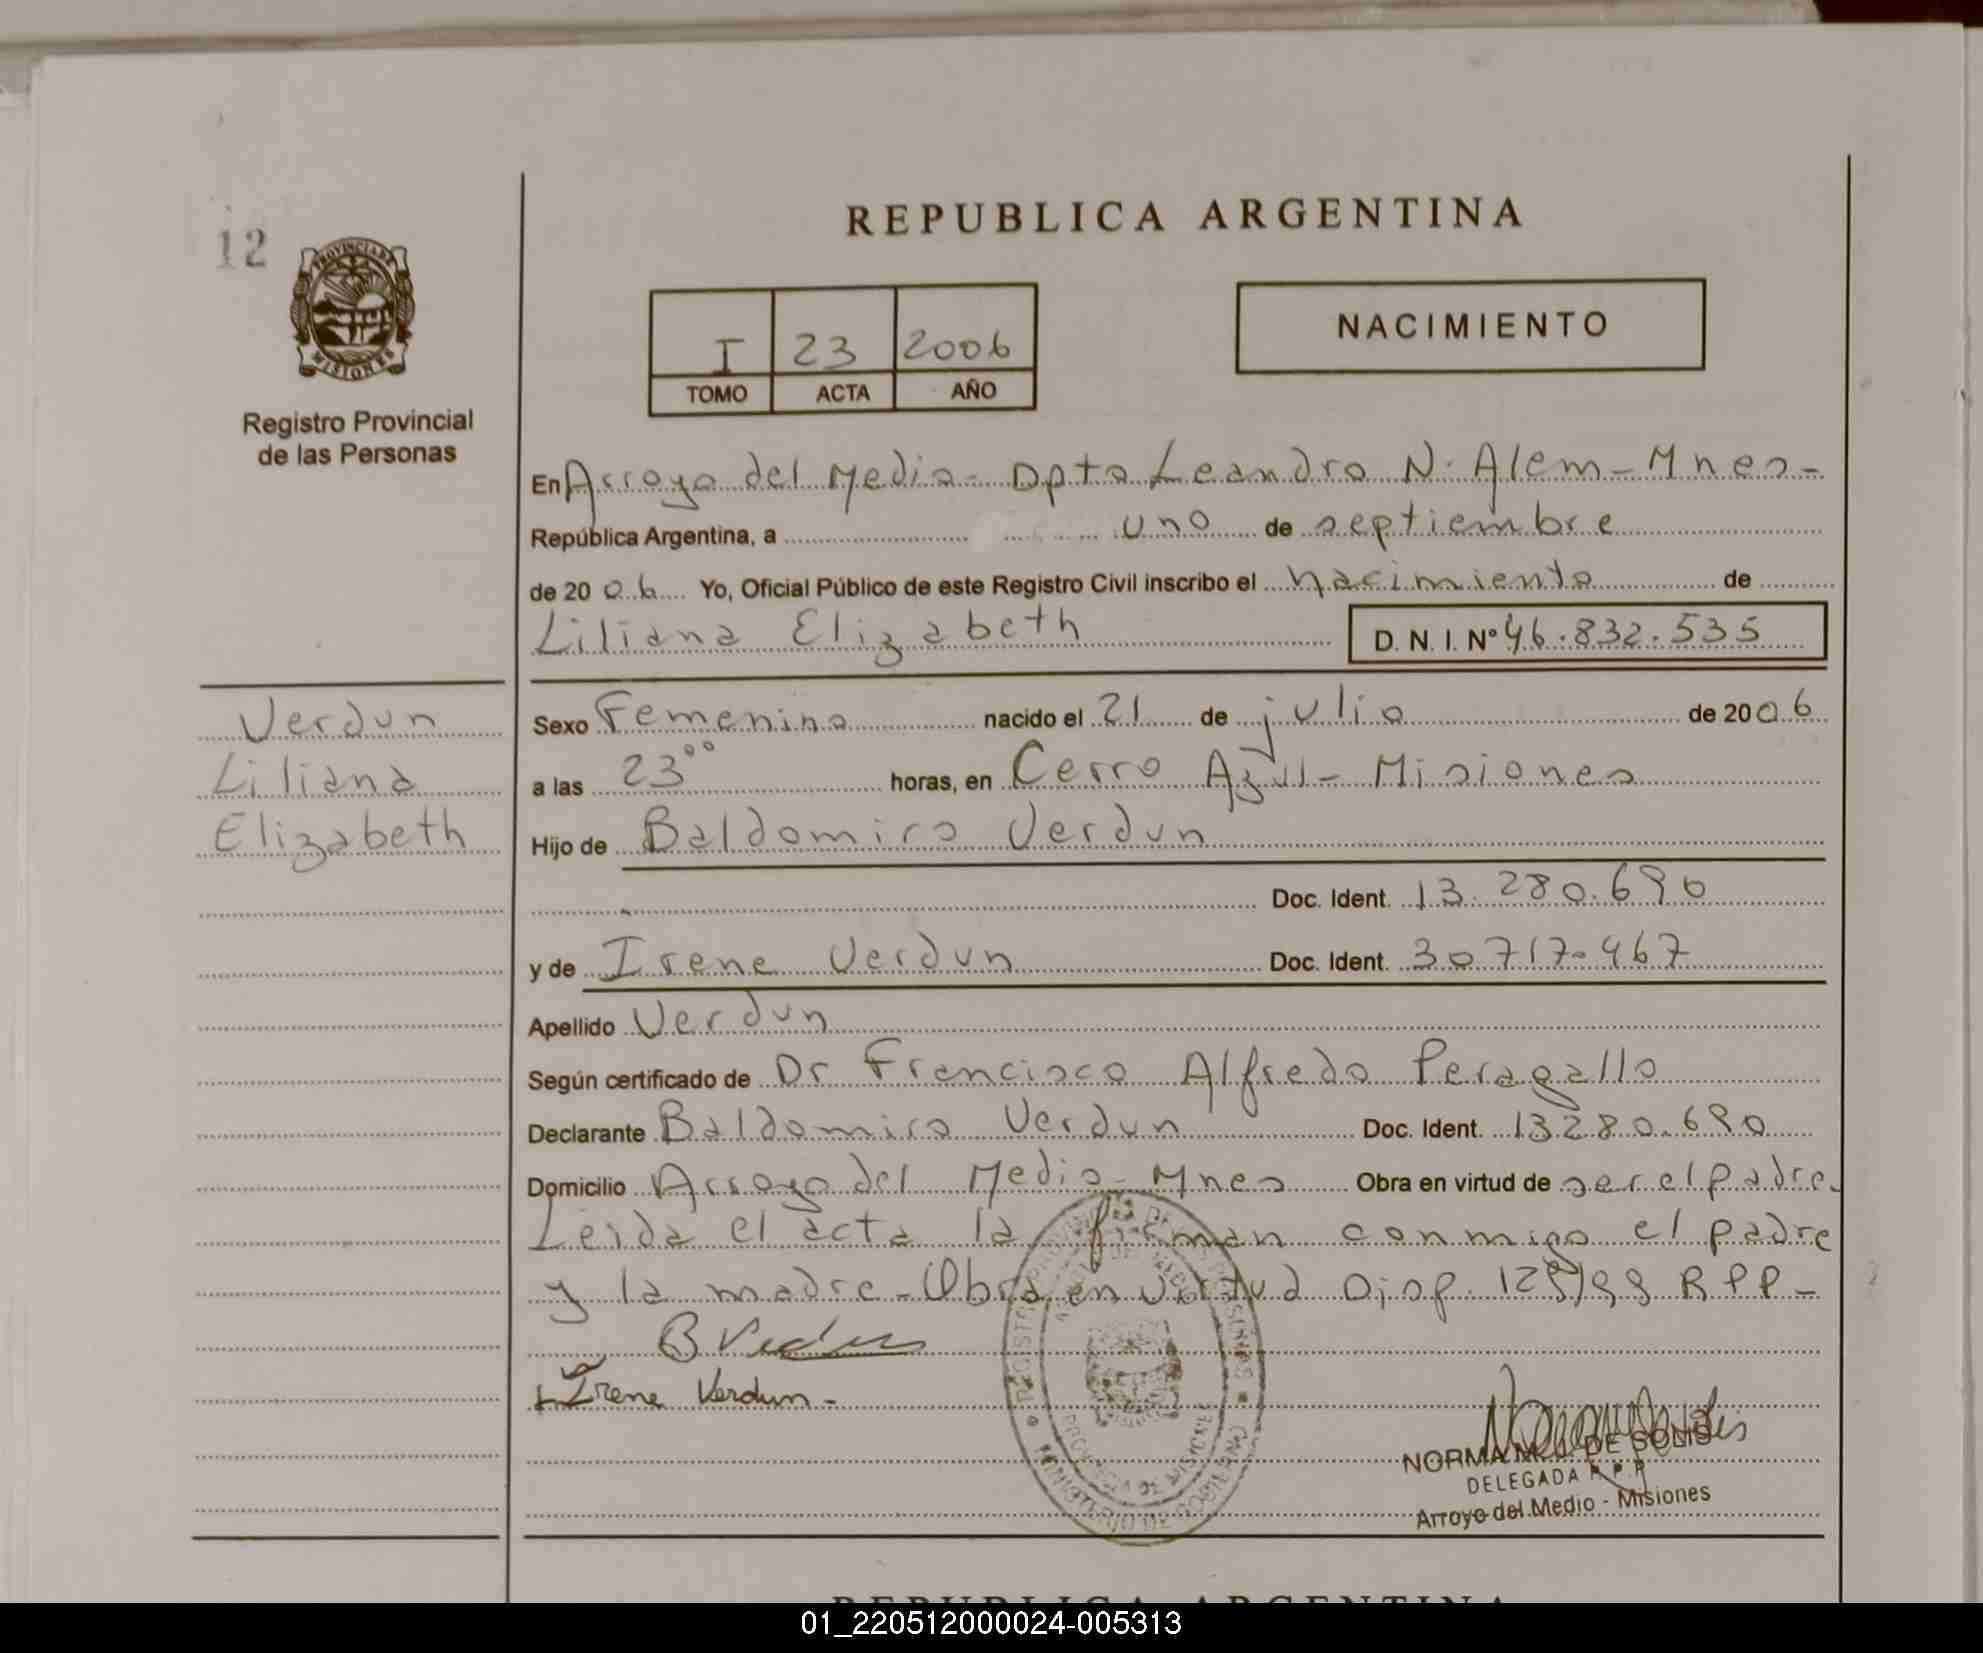 REPUBLICA ARGENTINA
12
PROVINCIA DE
MISIONES
Registro Provincial
de las Personas
I 23 2006
TOMO ACTA AÑO
NACIMIENTO
En Arroyo del Medio - Dpto Leandro N. Alem - Mnes -
República Argentina, a uno de septiembre
de 20 06 Yo, Oficial Público de este Registro Civil inscribo el nacimiento de
Liliana Elizabeth D. N. I. Nº 46.832.535
Verdun
Liliana
Elizabeth
Sexo Femenino nacido el 21 de julio de 20 06
a las 23 00 horas, en Cerro Azul - Misiones
Hijo de Baldomiro Verdun
Doc. Ident. 13.280.690
y de Irene Verdun Doc. Ident. 30717.467
Apellido Verdun
Según certificado de Dr Francisco Alfredo Peragallo
Declarante Baldomiro Verdun Doc. Ident. 13280.690
Domicilio Arroyo del Medio - Mnes Obra en virtud de ser el padre.
Leida el acta la firman conmigo el padre
y la madre - Obra en virtud Disp. RPP -
B Verdun
Irene Verdun -
NORMA M. DE SOLIS
DELEGADA R.P.P
Arroyo del Medio - Misiones
PROVINCIA DE MISIONES
MINISTERIO DE GOBIERNO
REPUBLICA ARGENTINA
01_220512000024-005313